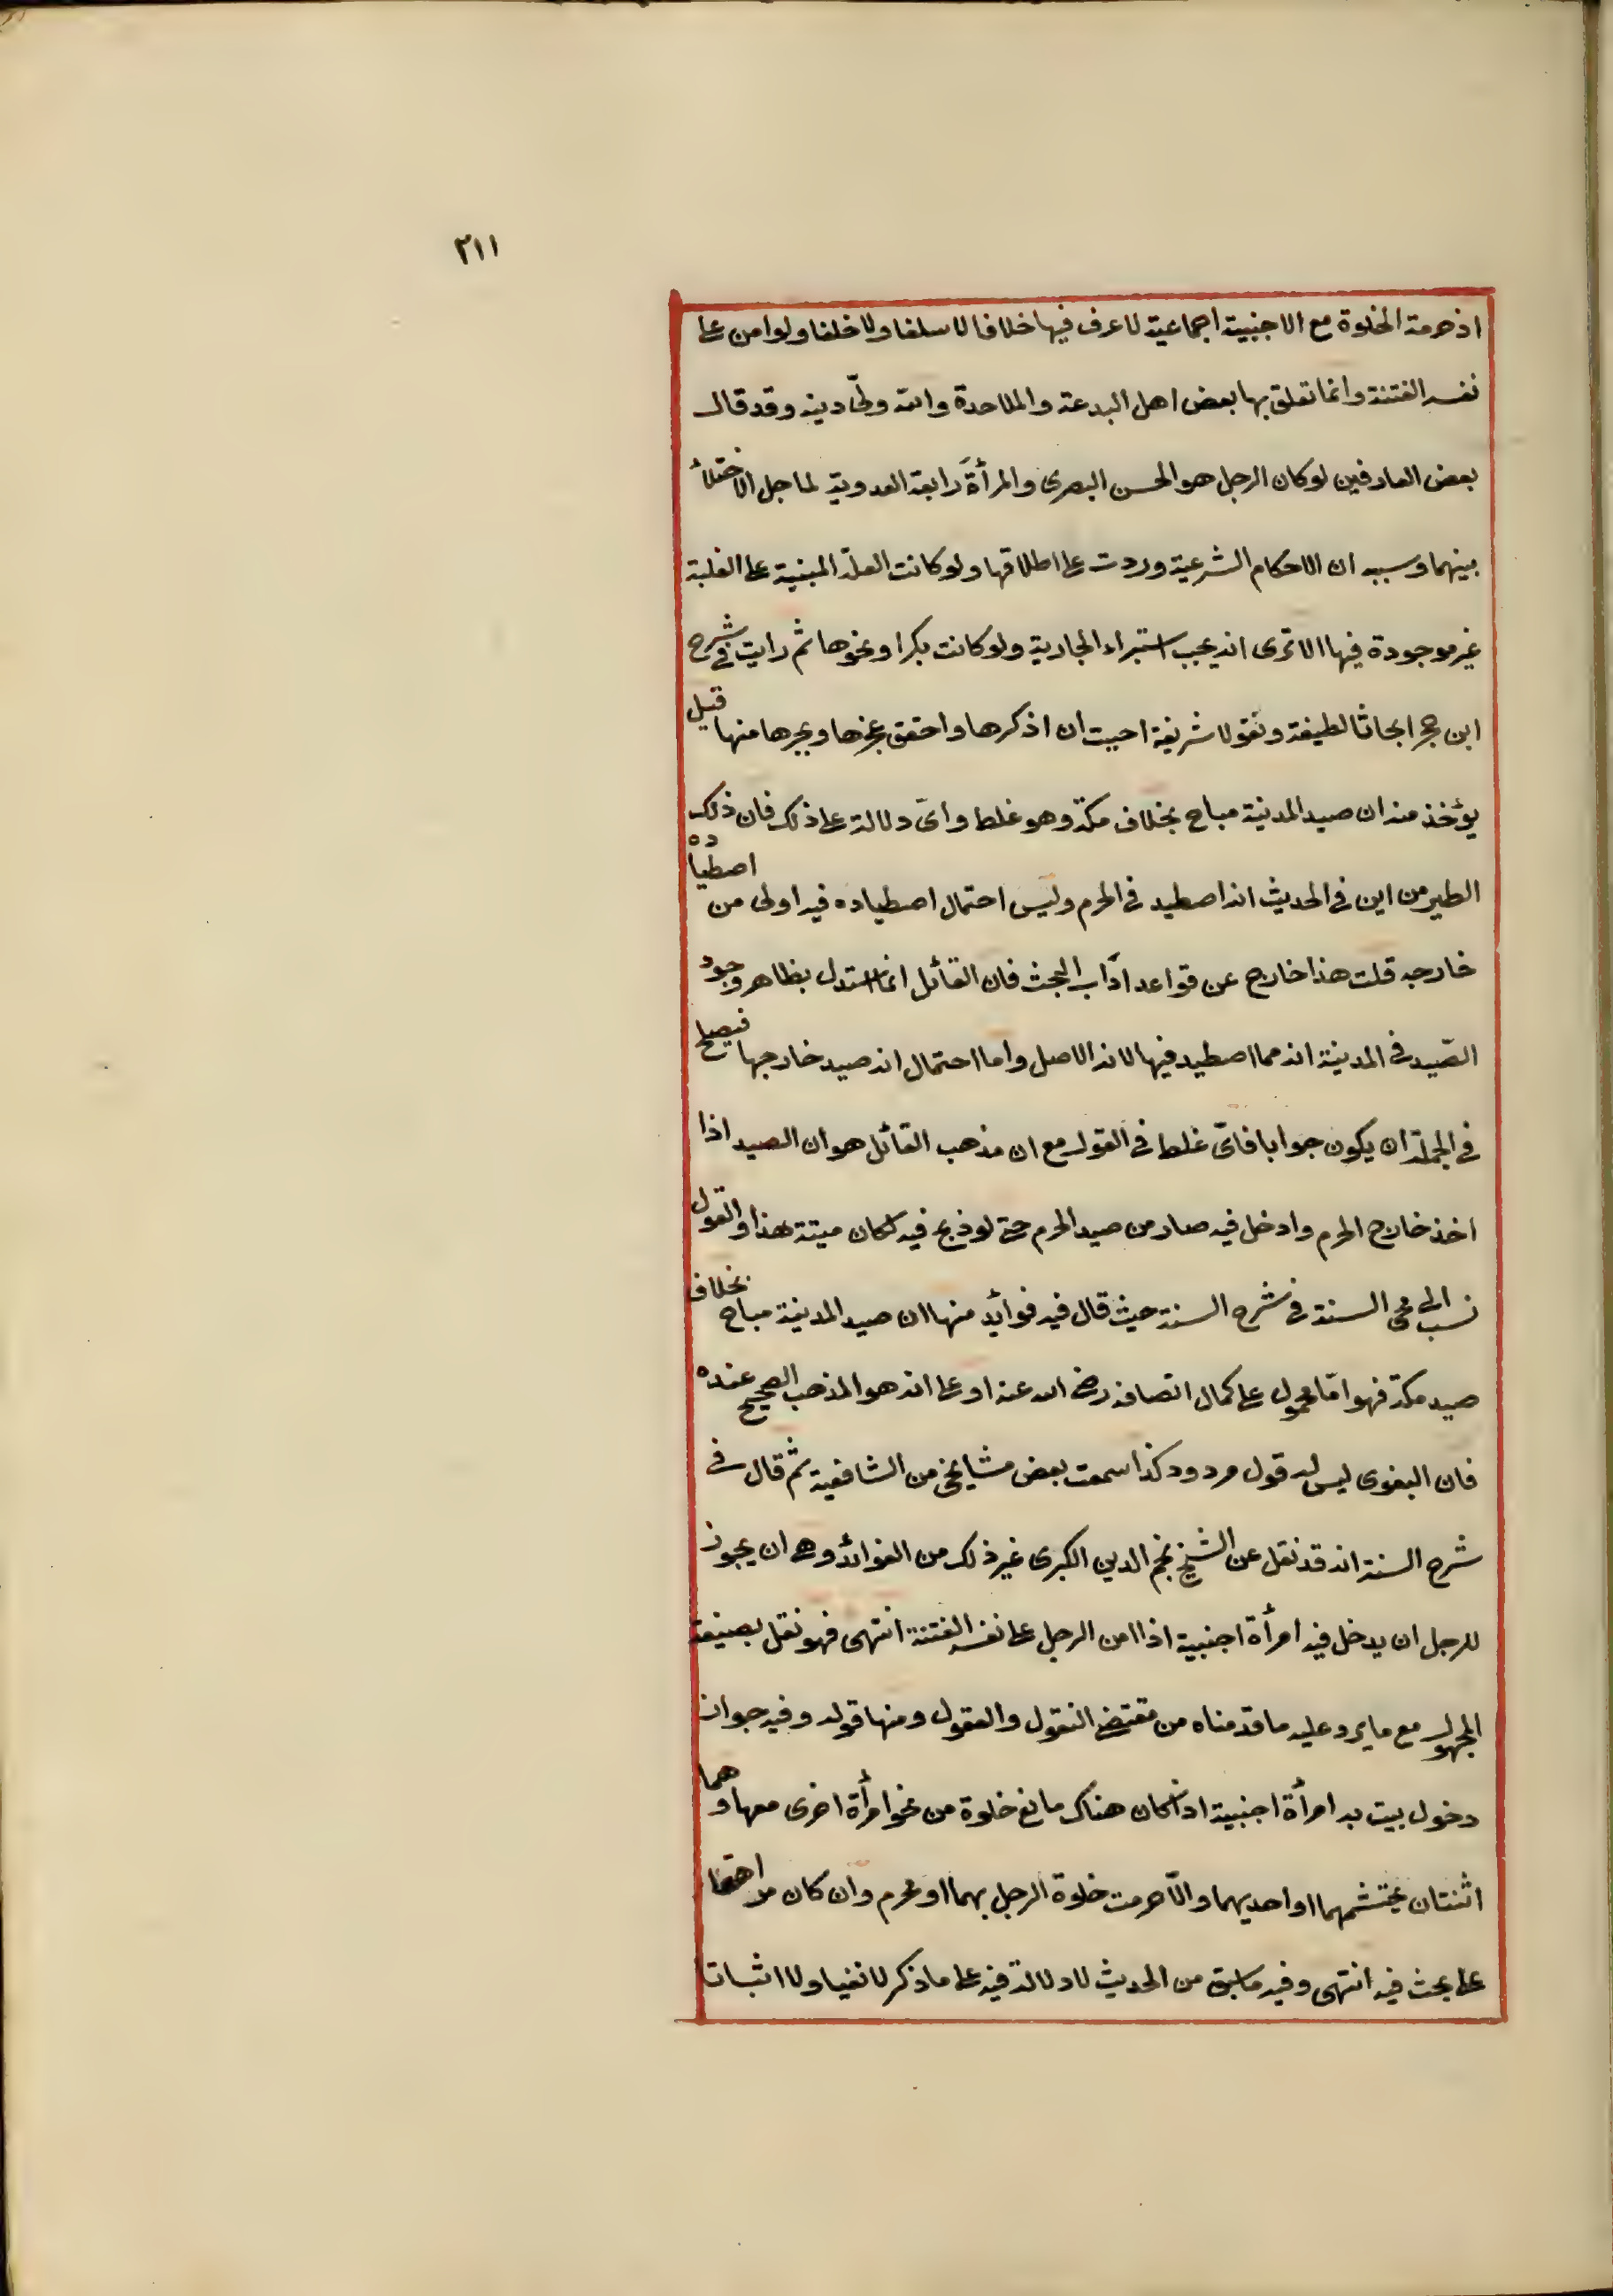 ٢١١
اذ حرمة الخلوة مع الاجنبية اجماعية لا عرف فيها خلافا لا سلفا ولا خلفا ولو امن على
نفسه الفتنة وانما تعلق بها بعض اهل البدعة والملاحدة والله ولىّ دينه وقد قال
بعض العارفين لو كان الرجل هو الحسن البصرى والمرأة رابعة العدوية لما حل الاختلاء
بينهما وسببه ان الاحكام الشرعية وردت على اطلاقها ولو كانت العلة المبنية على الغلبة
غير موجودة فيها الا ترى انه يجب استبراء الجارية ولو كانت بكرا ونحوها ثم رايت فى شرح
ابن حجر ابحاثا لطيفة ونقولا شريفة احببت ان اذكرها واحقق عجزها وبجرها منها قيل
يؤخذ منه ان صيد المدينة مباح بخلاف مكة وهو غلط واىّ دلالة على ذلك فان ذلك
الطير من اين فى الحديث انه اصطيد فى الحرم وليس احتمال اصطياده فيه اولى من اصطياده
خارجه قلت هذا خارج عن قواعد آداب البحث فان القائل انما استدل بظاهر وجود
الصّيد فى المدينة انه مما اصطيد فيها لانه الاصل واما احتمال انه صيد خارجها فيصلح
فى الجملة ان يكون جوابا فاىّ غلط فى القول مع ان مذهب القائل هو ان الصيد اذا
اخذ خارج الحرم وادخل فيه صار من صيد الحرم حتى لو ذبح فيه لكان ميتة هذا والقول
نسب الى محى السنة فى شرح السنة حيث قال فيه فوائد منها ان صيد المدينة مباح بخلاف
صيد مكة فهو امّا محمول على كمال انصافه رضى الله عنه او على انه هو المذهب الصحيح عنده
فان البغوى ليس له قول مردود كذا سمعت بعض مشايخى من الشافعية ثم قال فى
شرح السنة انه قد نقل عن الشيخ نجم الدين الكبرى غير ذلك من الفوائد وهى ان يجوز
للرجل ان يدخل فيه امرأة اجنبية اذا امن الرجل على نفسه الفتنة انتهى فهو نقل بصيغة
المجهول مع ما يرد عليه ما قدمناه من مقتضى النقول والعقول ومنها قوله وفيه جواز
دخول بيت به امرأة اجنبية اذا كان هناك مانع خلوة من نحو امرأة اخرى معها وهما
اثنتان يحتشمهما او احديهما والّا حرمت خلوة الرجل بهما او محرم وان كان مراهقا
على بحث فيه انتهى وفيه ما سبق من الحديث لا دلالة فيه على ما ذكر لا نفيا ولا اثباتا